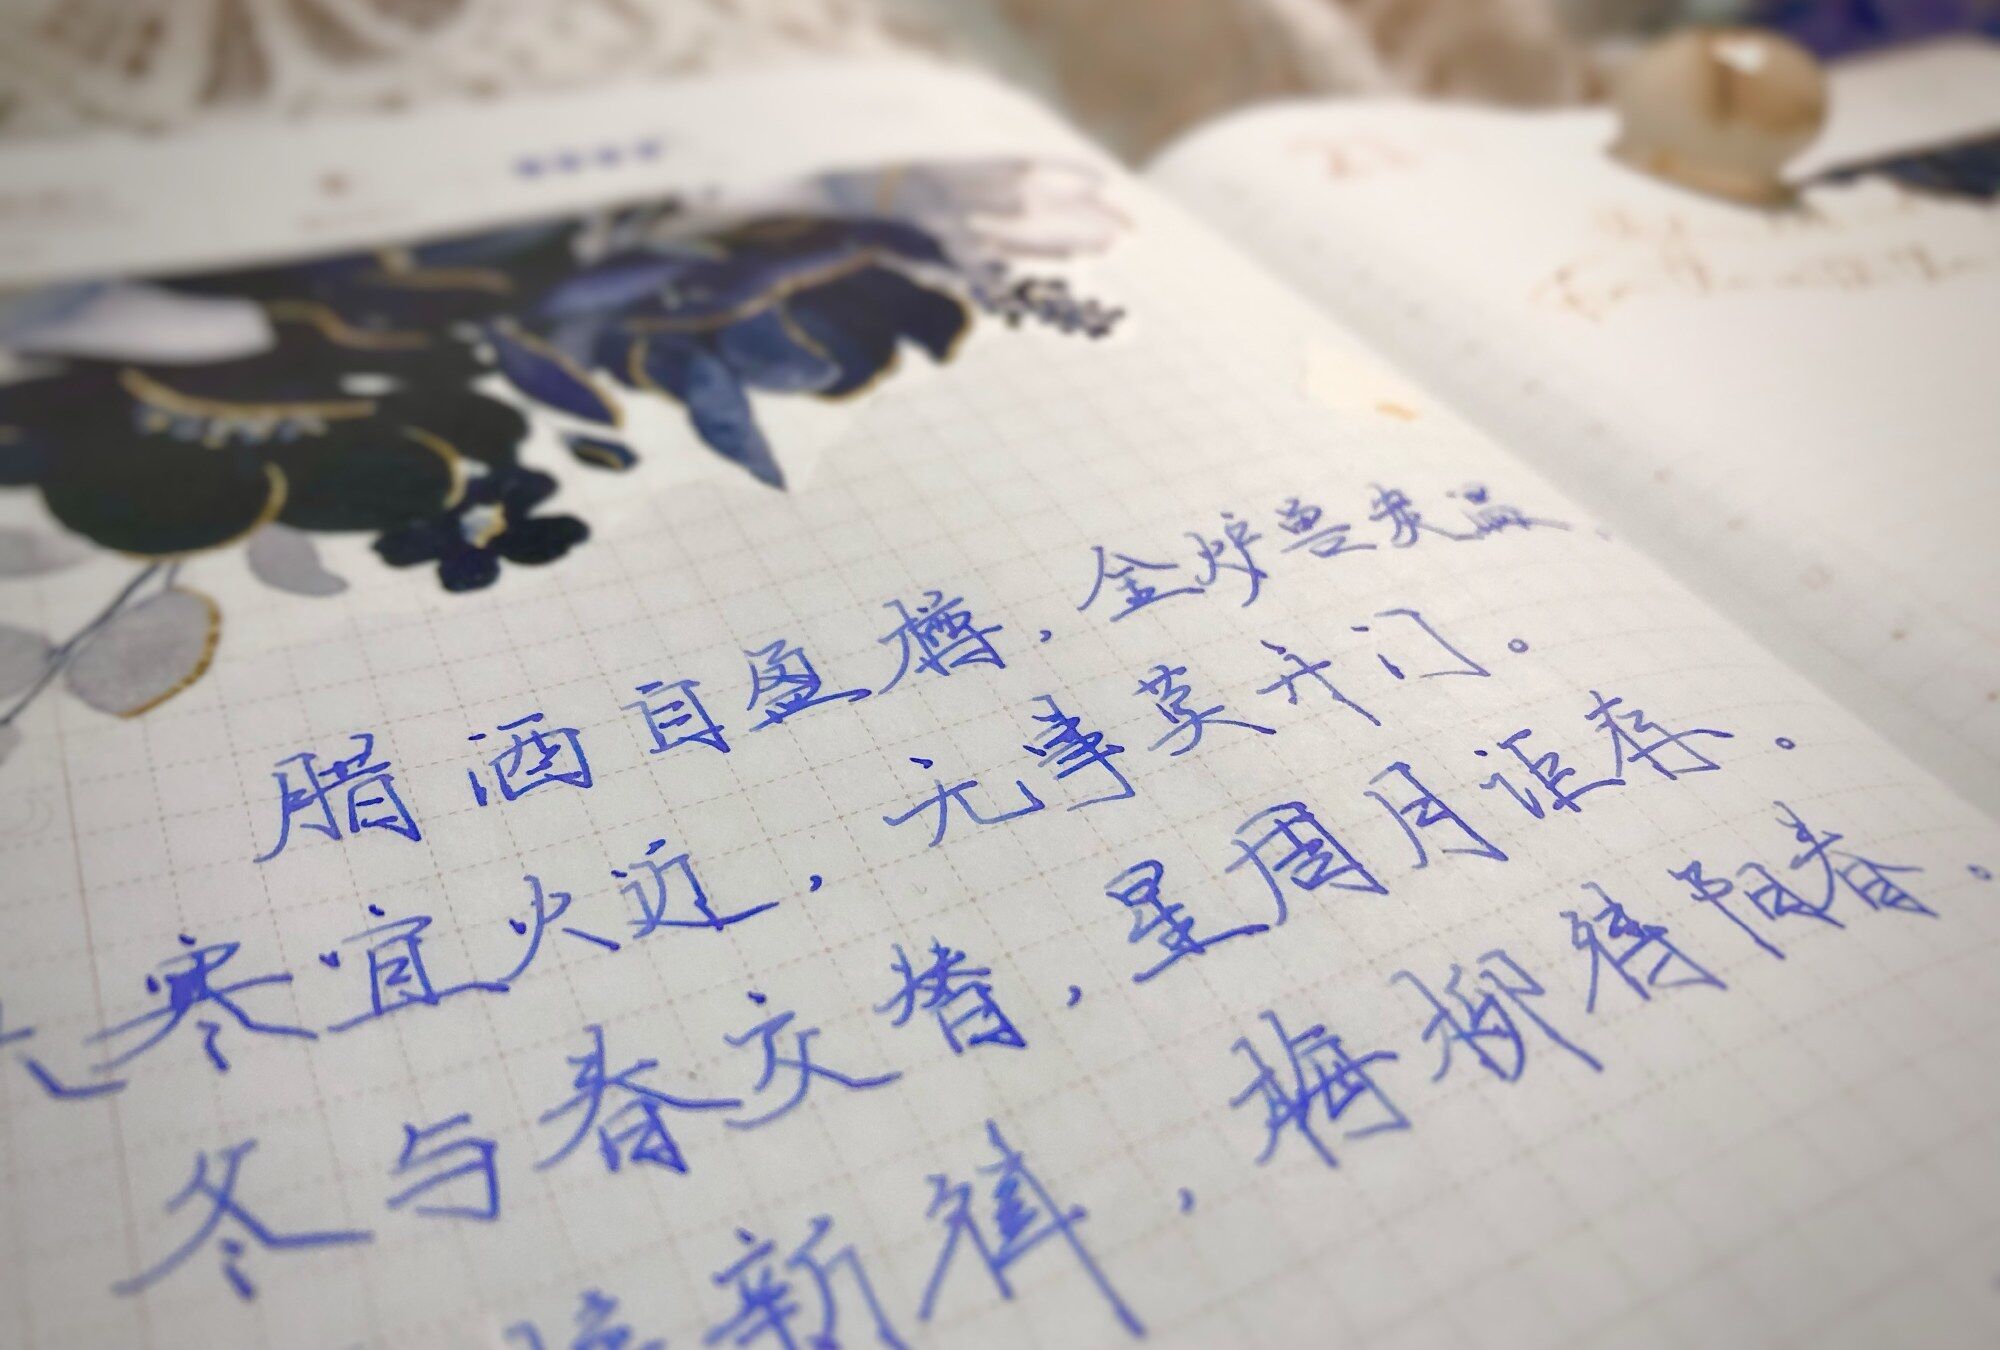 腊酒自盈樽，金炉兽炭温
寒宜火近，无事莫开门。
冬与春交替，星周月讵存。
新律，梅柳待阳春。